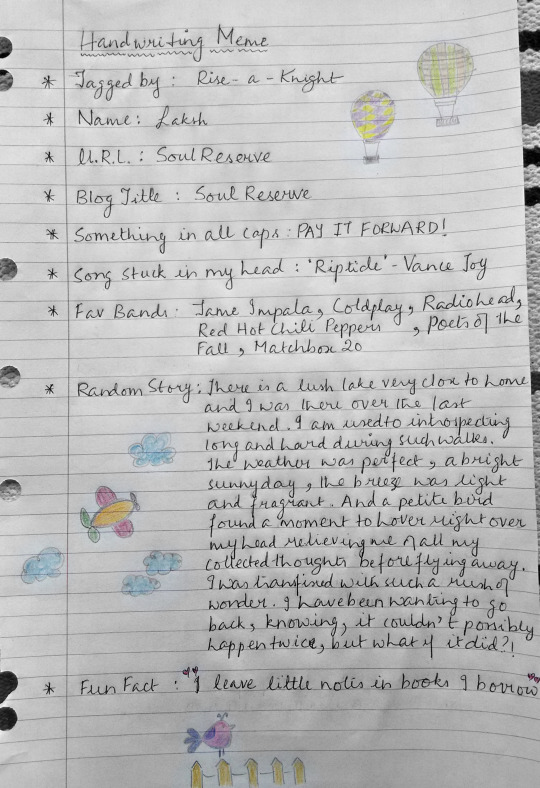 Handwriting Meme
* Tagged by : Rise-a-Knight
* Name : Laksh
* U.R.L. : Soul Reserve
* Blog Title : Soul Reserve
* Something in all caps : PAY IT FORWARD!
* Song stuck in my head : 'Riptide' - Vance Joy
* Fav Bands : Tame Impala, Coldplay, Radiohead,
Red Hot Chili Peppers , Poets of the
Fall, Matchbox 20
* Random Story : There is a lush lake very close to home
and I was there over the last
weekend. I am used to introspecting
long and hard during such walks.
The weather was perfect, a bright
sunny day, the breeze was light
and fragrant. And a petite bird
found a moment to hover right over
my head relieving me of all my
collected thoughts before flying away.
I was transfixed with such a rush of
wonder. I have been wanting to go
back, knowing, it couldn't possibly
happen twice, but what if it did?!
* Fun Fact : I leave little notes in books I borrow